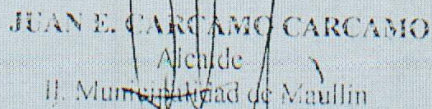 JUAN E. CARCAMO CARCAMO
Alcalde
Il. Municipalidad de Maullín